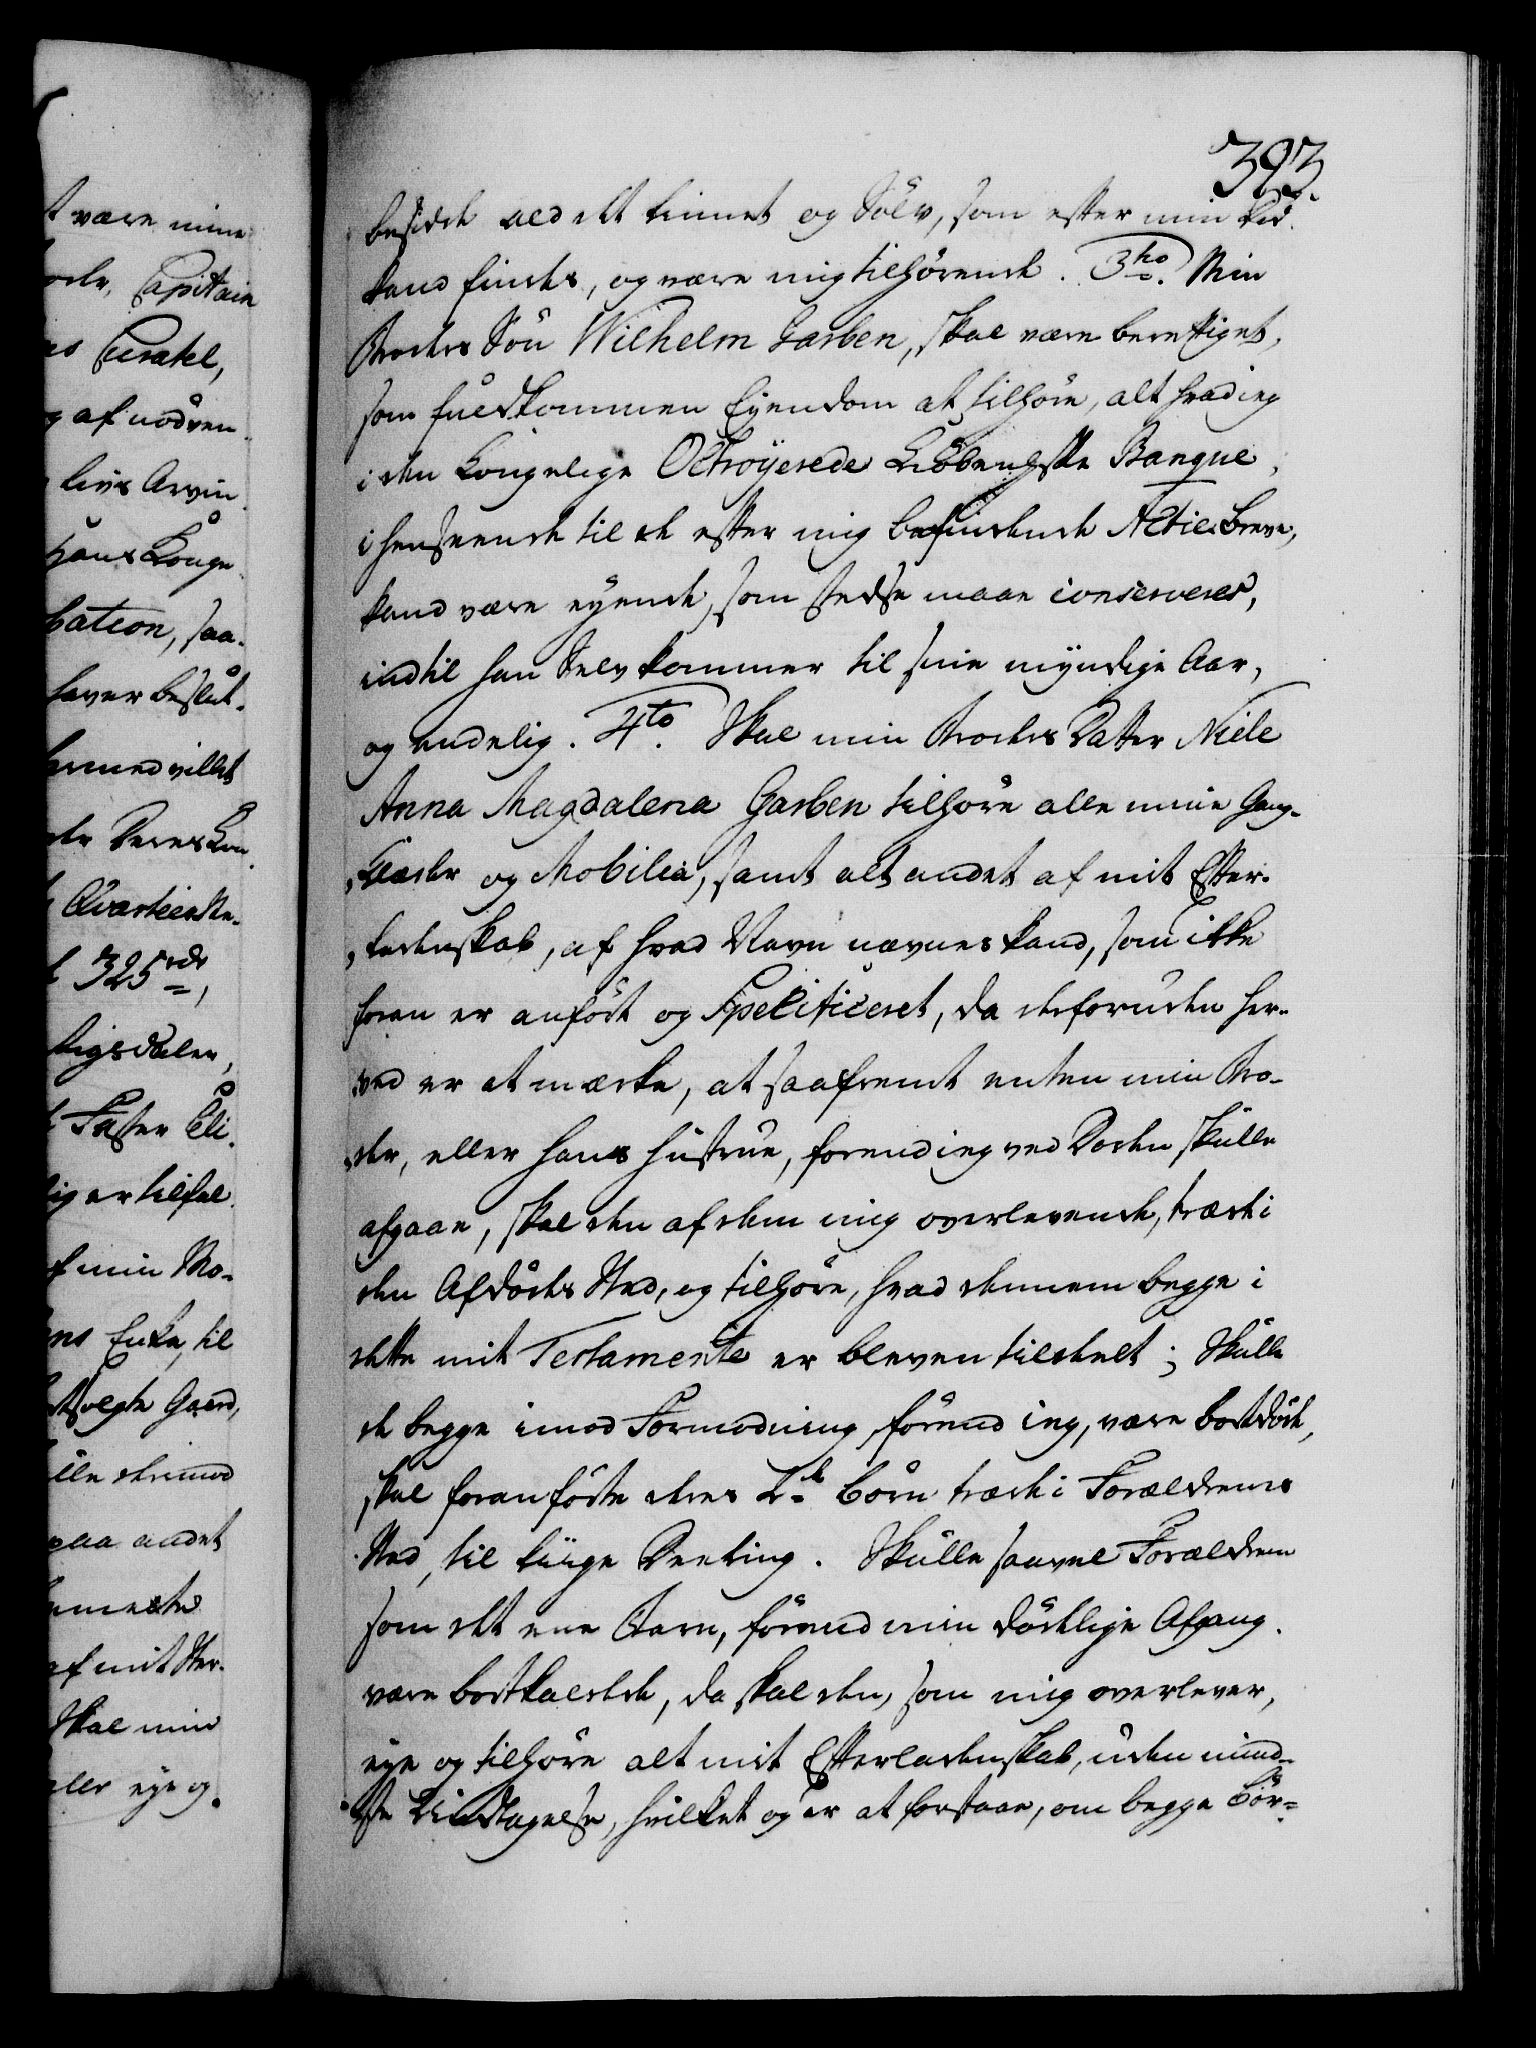 393.
besidde ald det Linnet og Sölv, som efter min Död
kand findes, og være mig tilhörende. 3tio. Min
Broders Sön Wilhelm Garben, skal være berettiget,
som fuldkommen Eyendom at tilhöre, alt hvad ieg
i den Kongelige Octroyerede Kiöbenhske Banqve,
i henseende til de efter mig befindende Actie-Breve,
kand være eyende, som stedse maae conserveres,
indtil han Selv kommer til sine myndige Aar,
og endelig. 4to. Skal min Broders Datter Niele
Anna Magdalena Garben tilhöre alle mine Gang-
Klæder og Mobilia, samt alt andet af mit Efter-
ladenskab, af hvad Navn nævnes kand, som ikke
foran er anfört og Speciticeret, da desforuden her-
ved er at mærke, at saafremt enten min Bro-
der, eller hans Hustrue, forend ieg ved Döden skulle
afgaae, skal den af dem mig overlevende, træde i
den Afdödes Sted, og tilhöre, hvad dennem begge i
dette mit Testamente er bleven tildeelt; Skulle
de begge imod Formodning, förend ieg, være bortdöde,
skal foranförte deres 2de Börn træde i Forældrenes
Sted, til liige Deeling. Skulle saavel Forældrene
som det ene Barn, förend min dödelige Afgang
være bortkaldede, da skal den, som mig overlever,
eye og tilhöre alt mit Efterladenskab, uden mind-
ste Undtagelse, hvilket og er at forstaae, om begge Bör-
t være mine
Capitain
Curatel,
g af nödven-
livs Arvin-
Hans Konge-
bation, saa-
haver beslut-
hermed villet
Deres Kon-
Qvarteer
325 rdr,
Rigsdaler,
Faster Eli-
ig er tilfal-
f min Mo-
Enke, til
solgte Gaard,
ille derimod
paa andet
af mit Ster-
Skal min
eller eye og